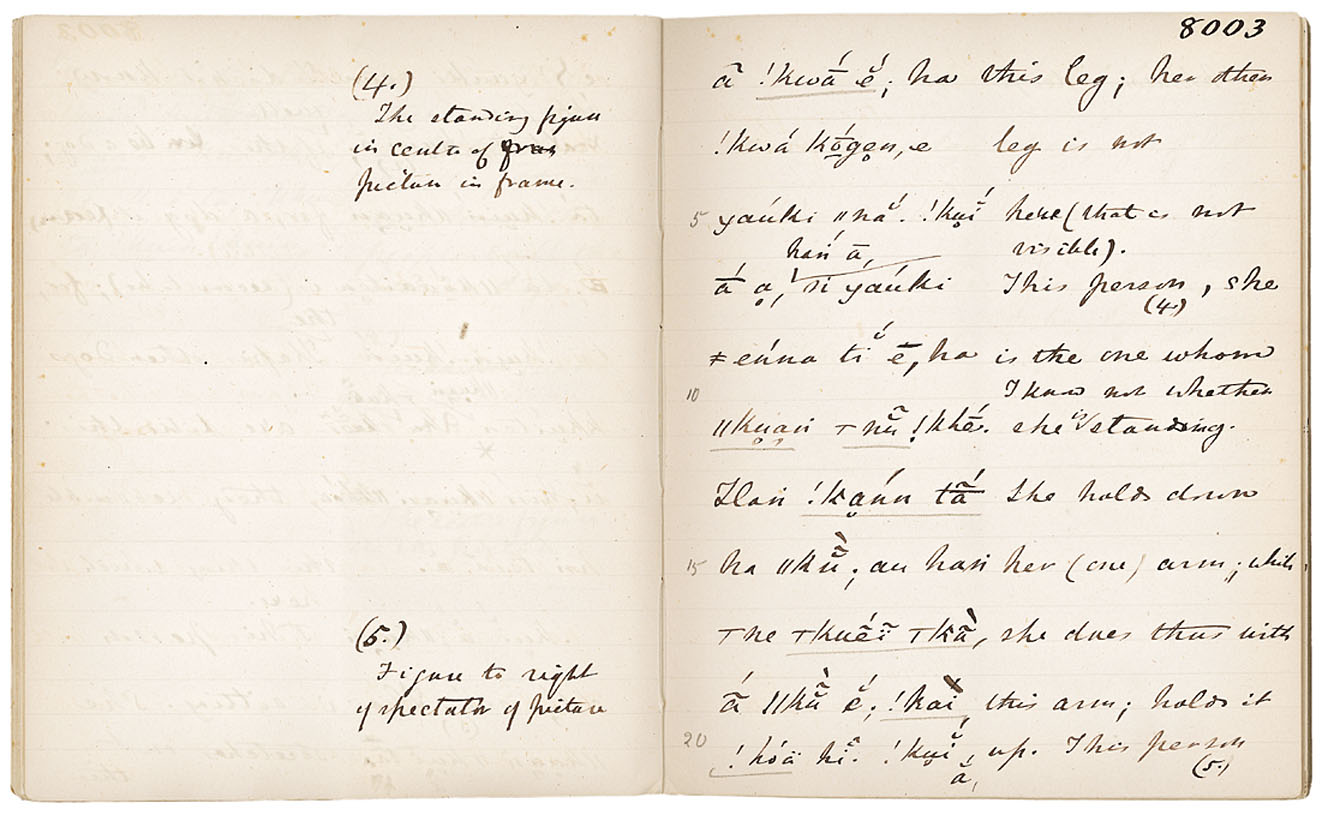 (4.)
The standing figure
in centre of fra
picture in frame.
(5.)
Figure to right
of spectator of picture
8003
ā !kwā́ ḗ; ha this leg; her other
!kwá kṓgen, e leg is not
5 yaúki ǁnắ. !kuĭ́ here (that is not
haṅ ā, visible).
ā́ a, ṅ yaúki This person, she
(4.)
ǂeńna tĭ́ ē, ha is the one whom
10 I know not whether
ǁkuaṅ nũ̆ !khé. she is standing.
Ilaṅ !kańn tã́ She holds down
15 ha ǁkũ̆̀; au haṅ her (one) arm; while
ne kuḗï kã̀, she does thus with
ā́ ǁkũ̆̀ ĕ́; !kai this arm; holds it
20 !hóä hĩ. !kuĭ́ up. This person
ā, (5.)